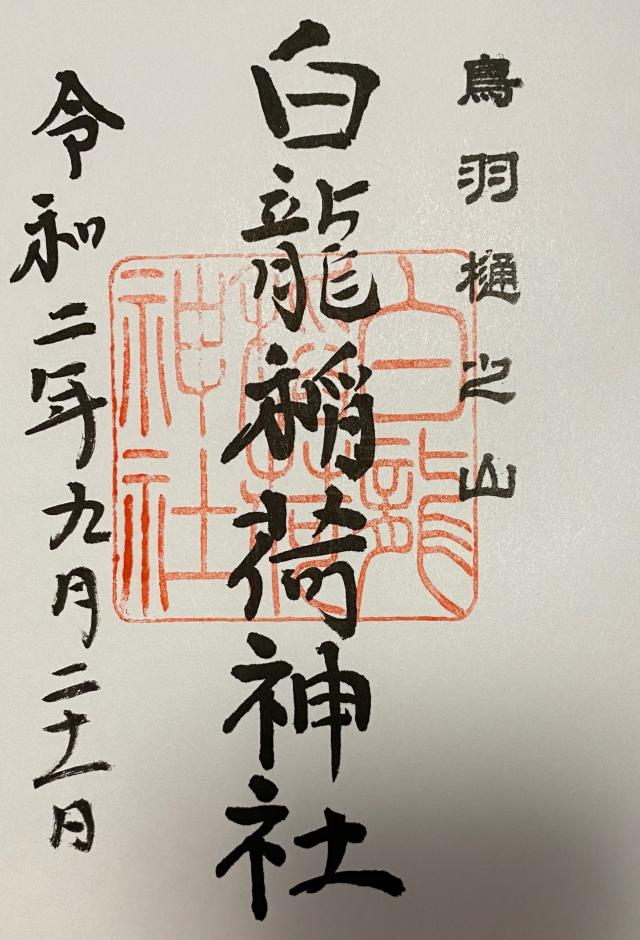 鳥羽樋之山
白龍稲荷神社
令和二年九月二十一日
白龍稲荷神社